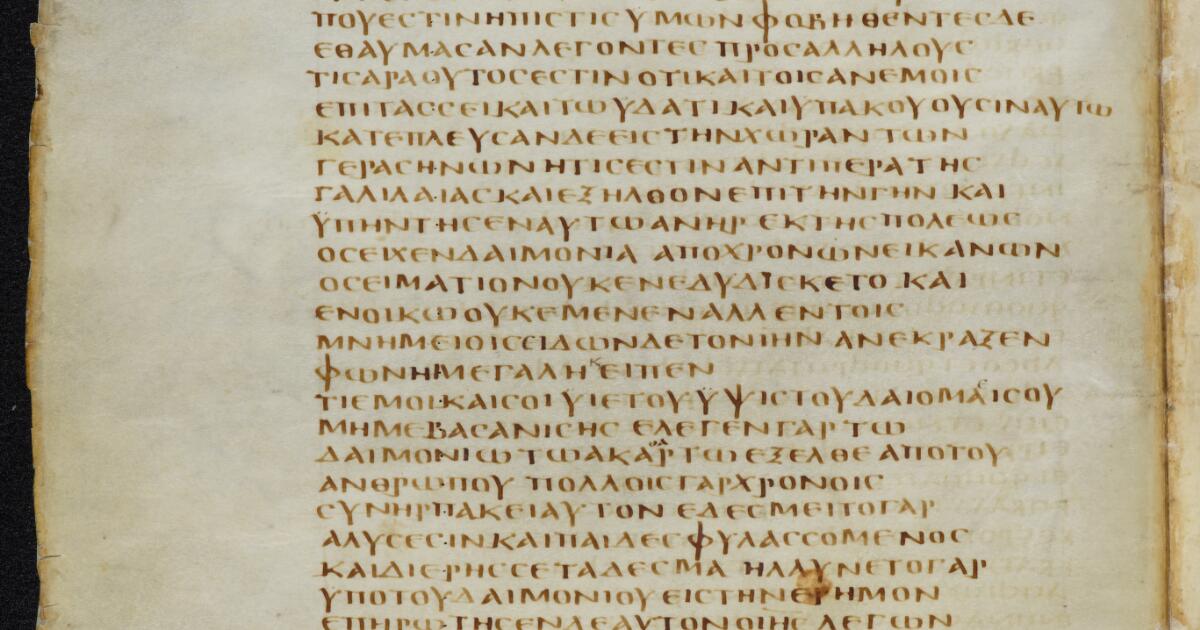 ΠΟΥΕϹΤΙΝΗΠΙϹΤΙϹΥΜΩΝΦΟΒΗΘΕΝΤΕϹΔΕ
ΕΘΑΥΜΑϹΑΝΛΕΓΟΝΤΕϹ ΠΡΟϹΑΛΛΗΛΟΥϹ
ΤΙϹΑΡΑΟΥΤΟϹΕϹΤΙΝ ΟΤΙΚΑΙΤΟΙϹΑΝΕΜΟΙϹ
ΕΠΙΤΑϹϹΕΙΚΑΙΤΩΥΔΑΤΙΚΑΙΫΠΑΚΟΥΟΥϹΙΝΑΥΤΩ
ΚΑΤΕΠΛΕΥϹΑΝΔΕΕΙϹΤΗΝΧΩΡΑΝΤΩΝ
ΓΕΡΑϹΗΝΩΝ ΗΤΙϹΕϹΤΙΝ ΑΝΤΙΠΕΡΑΤΗϹ
ΓΑΛΙΛΑΙΑϹΚΑΙΕΞΗΛΘΟΝΕΠΙΤΗΝΓΗΝ ΚΑΙ
ΫΠΗΝΤΗϹΕΝΑΥΤΩΑΝΗΡ ΕΚΤΗϹΠΟΛΕΩϹ
ΟϹΕΙΧΕΝΔΑΙΜΟΝΙΑ ΑΠΟΧΡΟΝΩΝΕΙΚΑΝΩΝ
ΟϹΕΙΜΑΤΙΟΝΟΥΚΕΝΕΔΥΔΙϹΚΕΤΟ ΚΑΙ
ΕΝΟΙΚΩΟΥΚΕΜΕΝΕΝΑΛΛΕΝΤΟΙϹ
ΜΝΗΜΕΙΟΙϹΕΙΔΩΝΔΕΤΟΝΙΗΝ ΑΝΕΚΡΑΞΕΝ
ΦΩΝΗΜΕΓΑΛΗΚΕΙΠΕΝ
ΤΙΕΜΟΙΚΑΙϹΟΙΥΙΕΤΟΥΫΨΙϹΤΟΥΔΑΙΟΜΑΕΙϹΟΥ
ΜΗΜΕΒΑϹΑΝΙϹΗϹ ΕΛΕΓΕΝΓΑΡ ΤΩ
ΔΑΙΜΟΝΙΩΤΩΑΚΑΘΑΡΤΩΕΞΕΛΘΕ ΑΠΟΤΟΥ
ΑΝΘΡΩΠΟΥ ΠΟΛΛΟΙϹΓΑΡΧΡΟΝΟΙϹ
ϹΥΝΗΡΠΑΚΕΙΑΥΤΟΝ ΕΔΕϹΜΕΙΤΟΓΑΡ
ΑΛΥϹΕϹΙΝΚΑΙΠΑΙΔΕϹΦΥΛΑϹϹΟΜΕΝΟϹ
ΚΑΙΔΙΕΡΗϹϹΕΤΑΔΕϹΜΑ ΗΛΑΥΝΕΤΟΓΑΡ
ΥΠΟΤΟΥΔΑΙΜΟΝΙΟΥΕΙϹΤΗΝΕΡΗΜΟΝ
ΕΠΗΡΩΤΗϹΕΝΔΕΑΥΤΟΝΟΙΗϹ ΛΕΓΩΝ